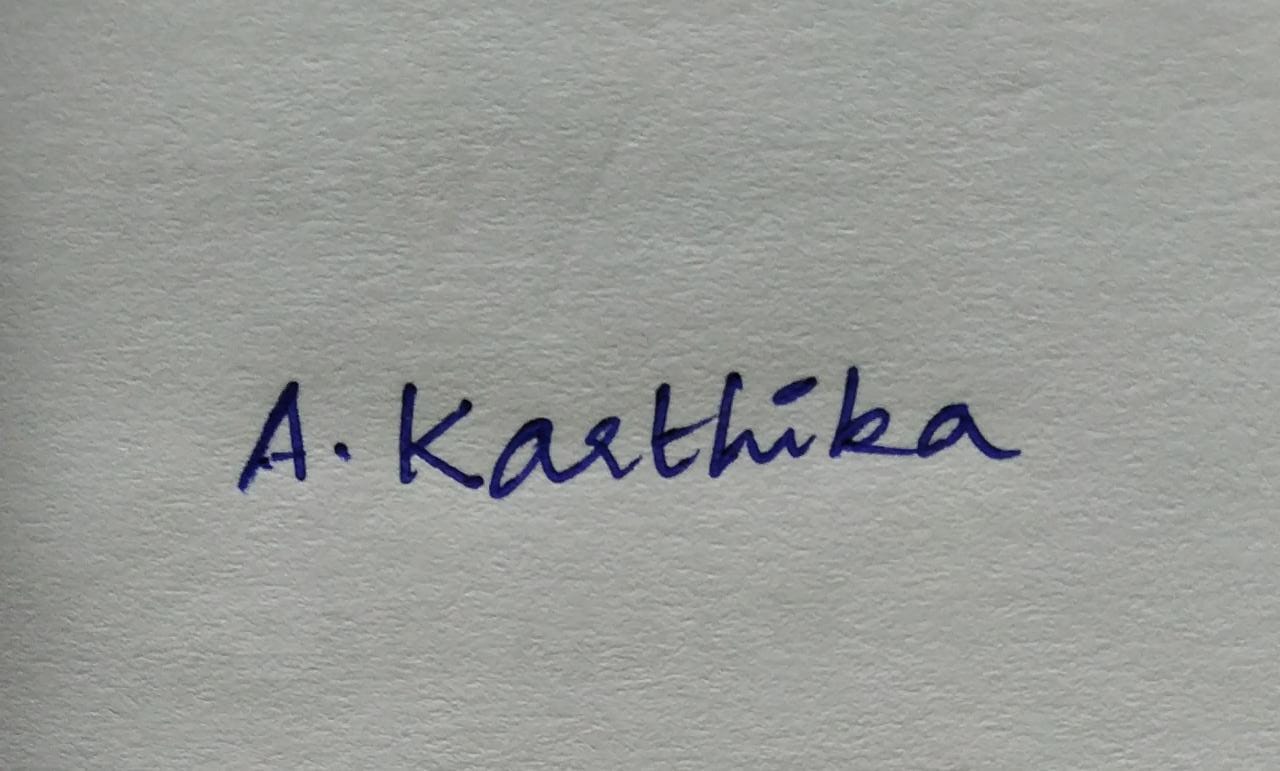 A. Karthika